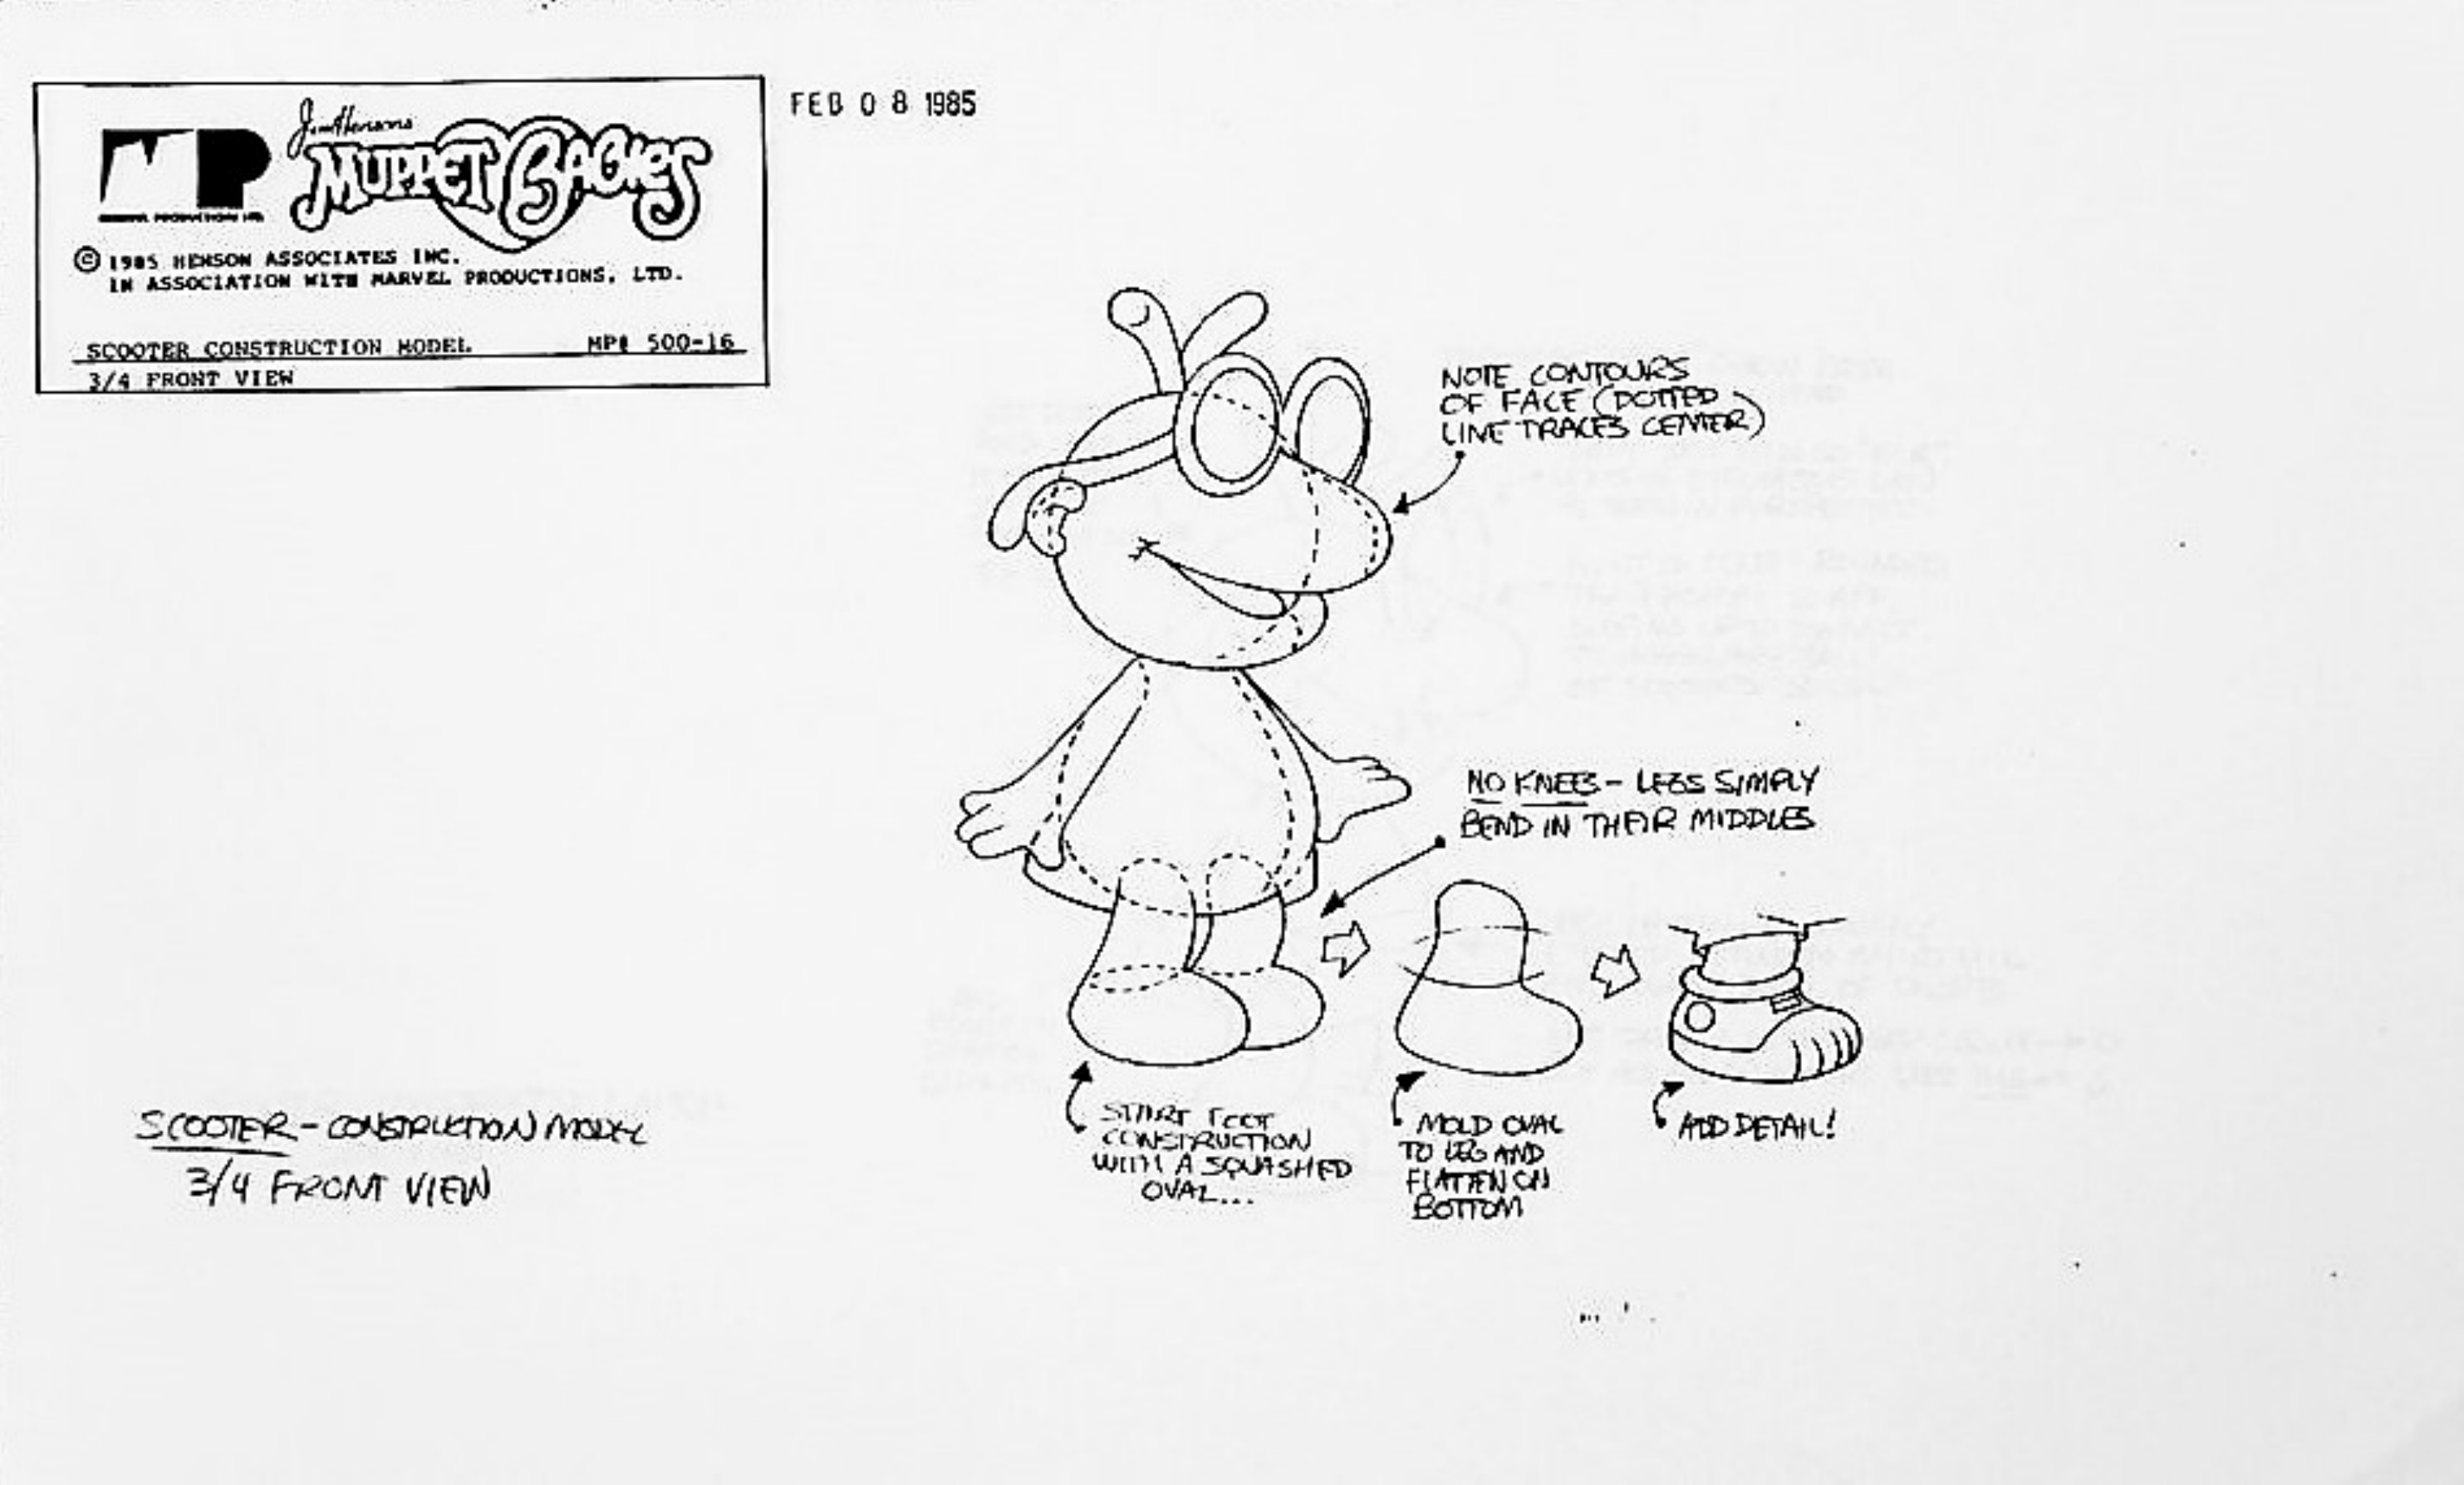 FEB 08 1985
Jim Henson's
MUPPET BABIES
MP
© 1985 HENSON ASSOCIATES INC.
IN ASSOCIATION WITH MARVEL PRODUCTIONS, LTD.
SCOOTER CONSTRUCTION MODEL MP# 500-16
3/4 FRONT VIEW
NOTE CONTOURS
OF FACE (DOTTED
LINE TRACES CENTER)
NO KNEES - LEGS SIMPLY
BEND IN THEIR MIDDLES
START FOOT
CONSTRUCTION
WITH A SQUASHED
OVAL...
MOLD OVAL
TO LEG AND
FLATTEN ON
BOTTOM
ADD DETAIL!
SCOOTER - CONSTRUCTION MODEL
3/4 FRONT VIEW